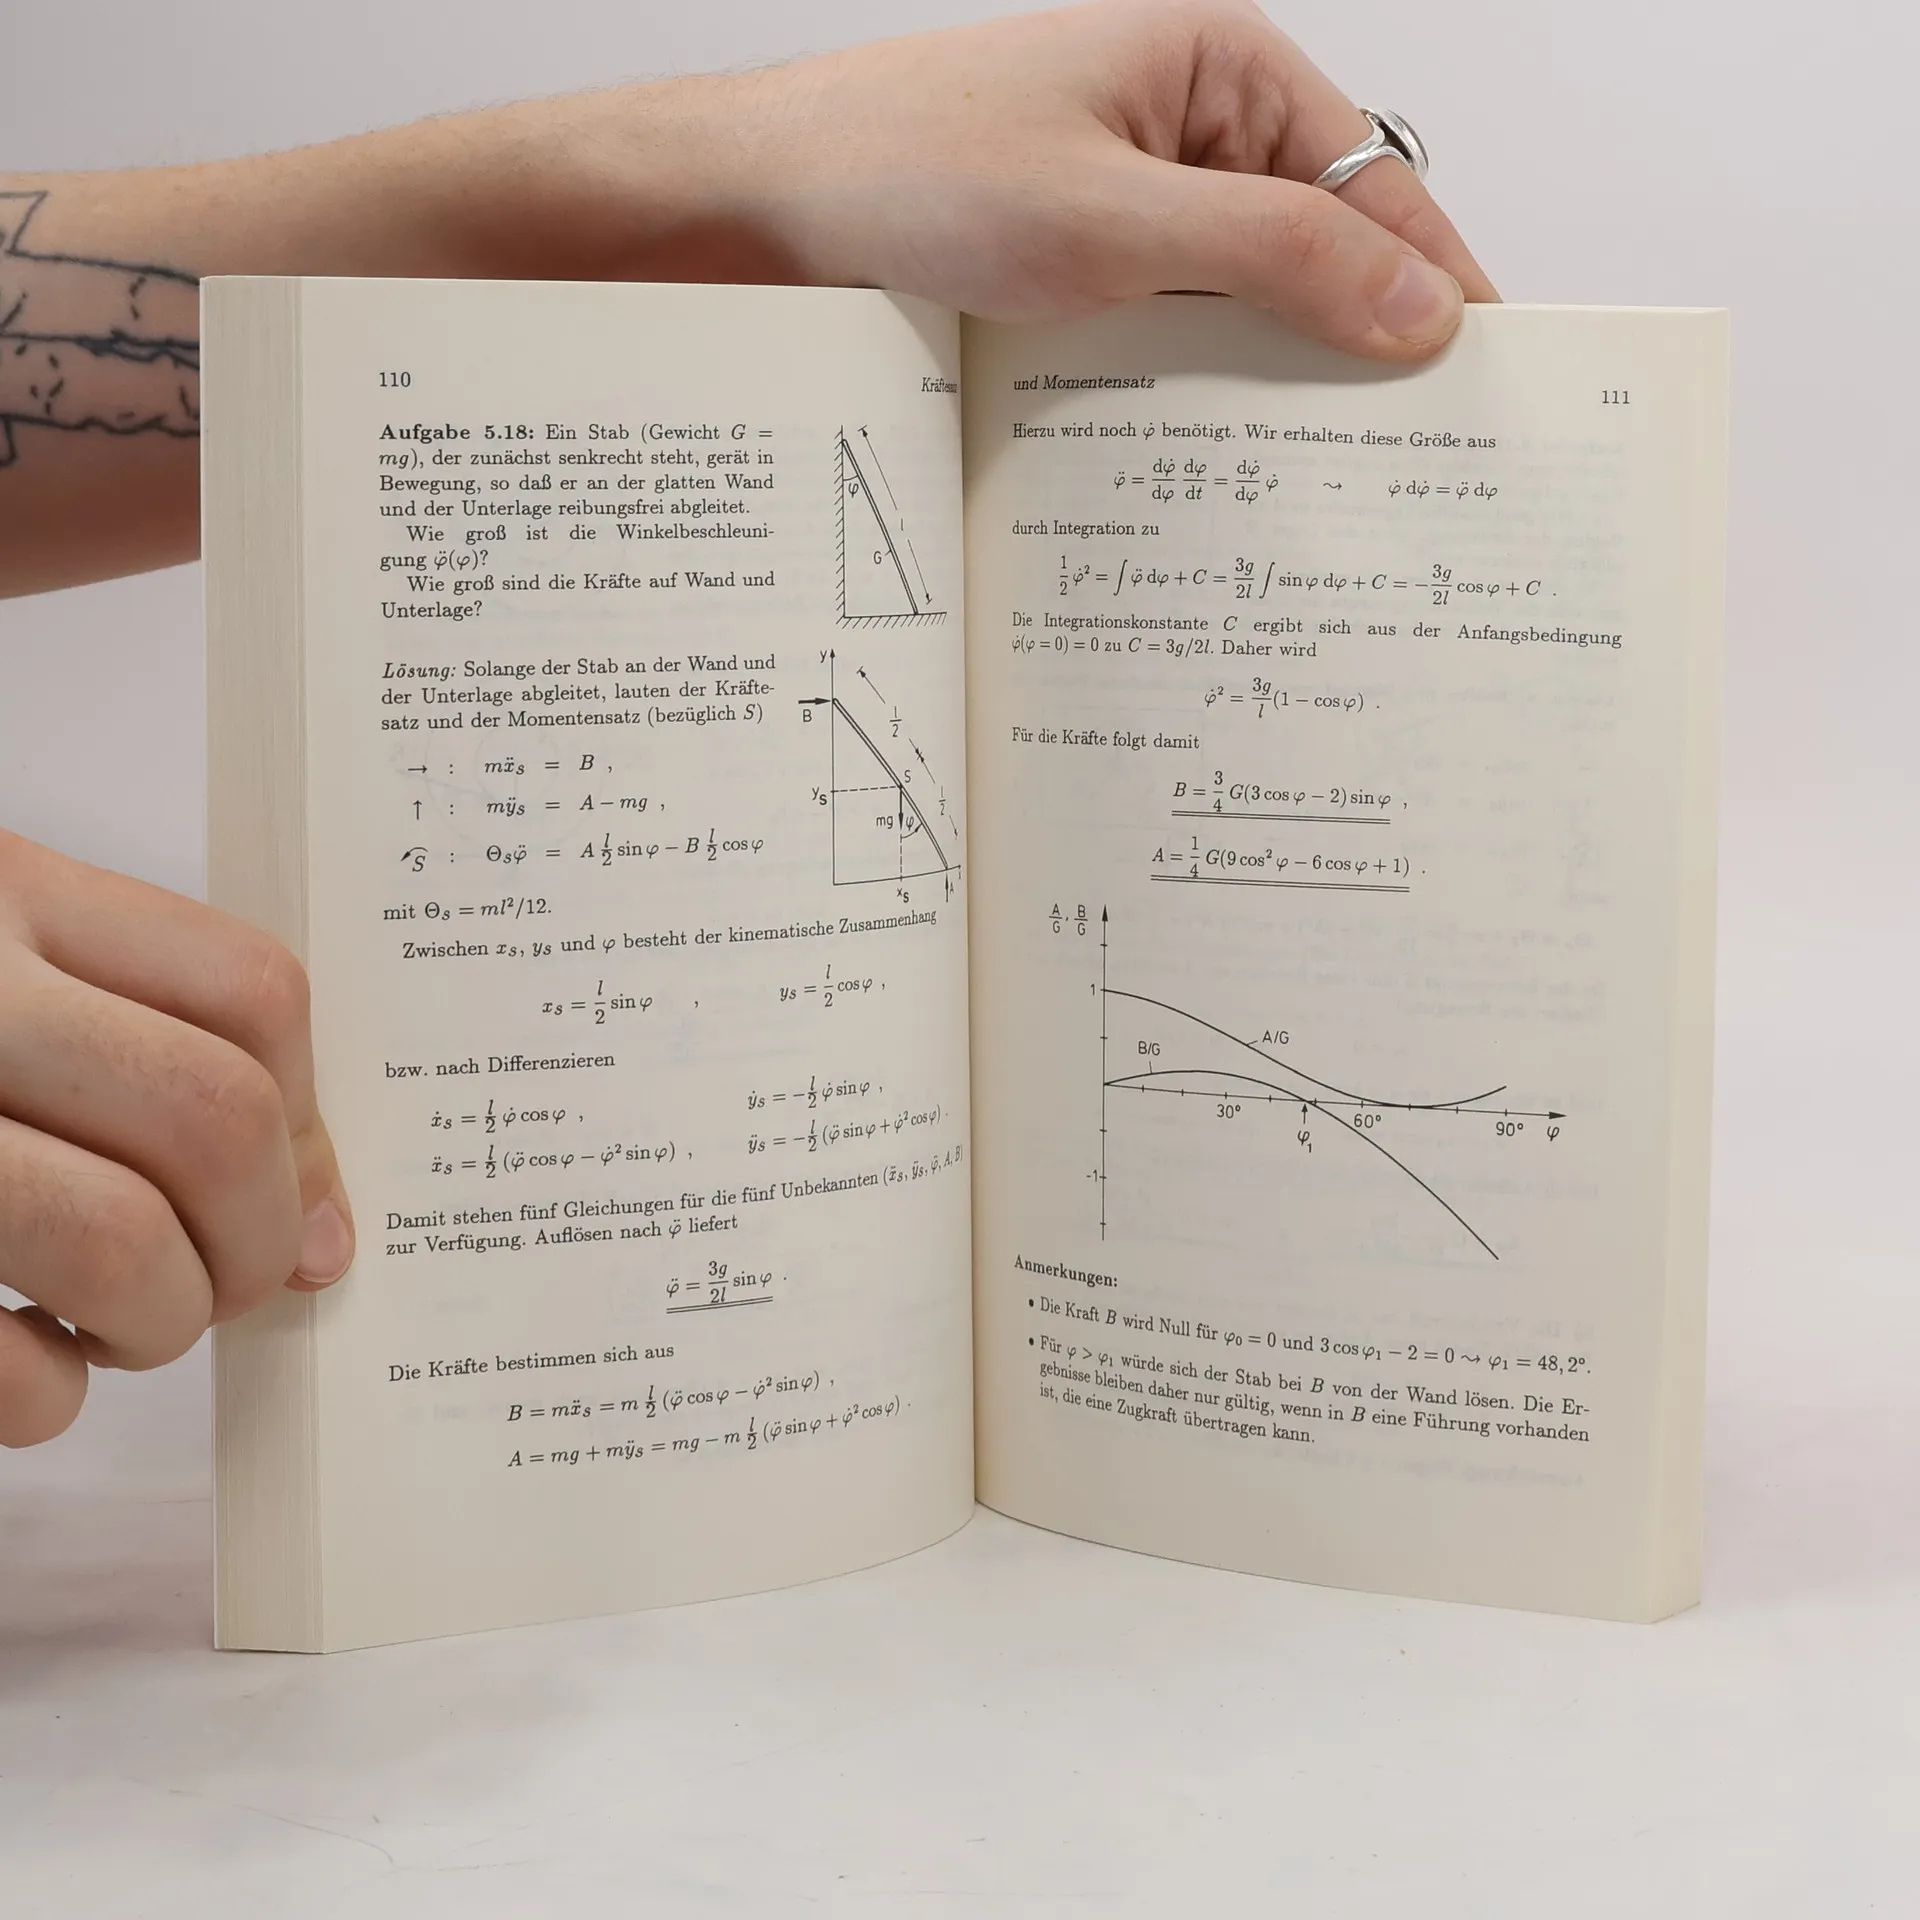 110
Kräftesa
Aufgabe 5.18: Ein Stab (Gewicht G =
mg), der zunächst senkrecht steht, gerät in
Bewegung, so daß er an der glatten Wand
und der Unterlage reibungsfrei abgleitet.
Wie groß ist die Winkelbeschleuni-
gung φ̈(φ)?
Wie groß sind die Kräfte auf Wand und
Unterlage?
φ
l
G
Lösung: Solange der Stab an der Wand und
der Unterlage abgleitet, lauten der Kräfte-
satz und der Momentensatz (bezüglich S)
→ : mẍ_S = B ,
↑ : mÿ_S = A − mg ,
S : Θ_Sφ̈ = A l/2 sin φ − B l/2 cos φ
y
B
l/2
S
l/2
y_S
mg
φ
x_S
A
mit Θ_S = ml²/12.
Zwischen x_S, y_S und φ besteht der kinematische Zusammenhang
x_S = l/2 sin φ , y_S = l/2 cos φ ,
bzw. nach Differenzieren
ẋ_S = l/2 φ̇ cos φ , ẏ_S = −l/2 φ̇ sin φ ,
ẍ_S = l/2 (φ̈ cos φ − φ̇² sin φ) , ÿ_S = −l/2 (φ̈ sin φ + φ̇² cos φ) .
Damit stehen fünf Gleichungen für die fünf Unbekannten (ẍ_S, ÿ_S, φ̈, A, B)
zur Verfügung. Auflösen nach φ̈ liefert
φ̈ = 3g/2l sin φ .
Die Kräfte bestimmen sich aus
B = mẍ_S = m l/2 (φ̈ cos φ − φ̇² sin φ) ,
A = mg + mÿ_S = mg − m l/2 (φ̈ sin φ + φ̇² cos φ) .
und Momentensatz
111
Hierzu wird noch φ̇ benötigt. Wir erhalten diese Größe aus
φ̈ = dφ̇/dφ dφ/dt = dφ̇/dφ φ̇ ⇝ φ̇ dφ̇ = φ̈ dφ
durch Integration zu
1/2 φ̇² = ∫ φ̈ dφ + C = 3g/2l ∫ sin φ dφ + C = −3g/2l cos φ + C .
Die Integrationskonstante C ergibt sich aus der Anfangsbedingung
φ̇(φ = 0) = 0 zu C = 3g/2l. Daher wird
φ̇² = 3g/l (1 − cos φ) .
Für die Kräfte folgt damit
B = 3/4 G(3 cos φ − 2) sin φ ,
A = 1/4 G(9 cos² φ − 6 cos φ + 1) .
A/G, B/G
1
A/G
B/G
30° 60° 90° φ
φ₁
-1
Anmerkungen:
• Die Kraft B wird Null für φ₀ = 0 und 3 cos φ₁ − 2 = 0 ⇝ φ₁ = 48, 2°.
• Für φ > φ₁ würde sich der Stab bei B von der Wand lösen. Die Er-
gebnisse bleiben daher nur gültig, wenn in B eine Führung vorhanden
ist, die eine Zugkraft übertragen kann.